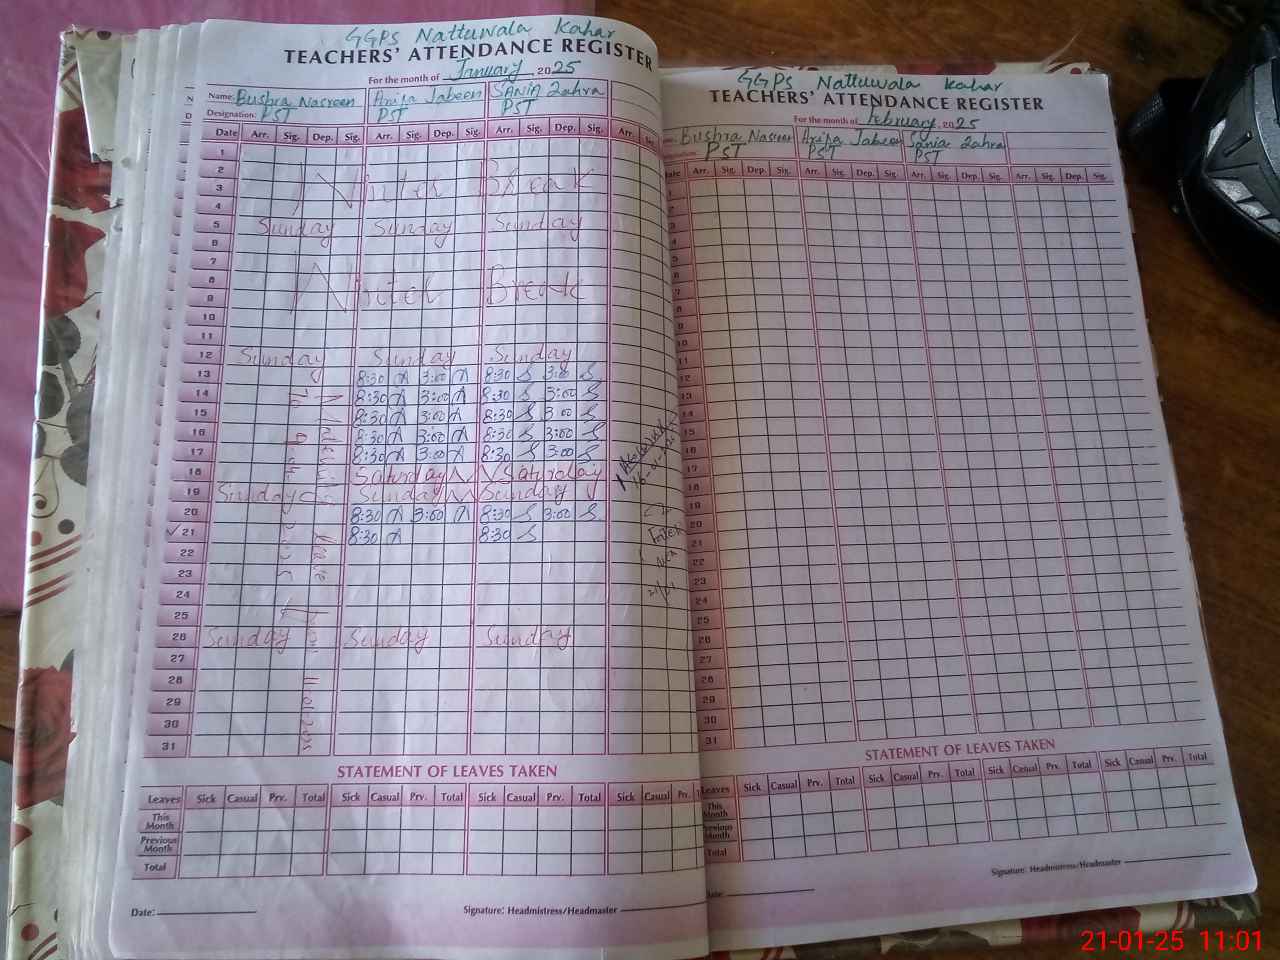 GGPS Nattuwala Kahar
TEACHERS' ATTENDANCE REGISTER
For the month of January, 2025
Name: Bushra Nasreen Arifa Jabeen SANIA Zahra
Designation: PST PST PST
Date Arr. Sig. Dep. Sig. Arr. Sig. Dep. Sig. Arr. Sig. Dep. Sig. Arr. Sig.
1
2
3 Winter Break
4
5 Sunday Sunday Sunday
6
7
8 Winter Break
9
10
11
12 Sunday Sunday Sunday
13 8:30 3:00 8:30 3:00
14 8:30 3:00 8:30 3:00
15 8:30 3:00 8:30 3:00
16 8:30 3:00 8:30 3:00
17 8:30 3:00 8:30 3:00
18 Saturday Saturday
19 Sunday Sunday Sunday
20 8:30 3:00 8:30 3:00
21 8:30 8:30
22
23
24
25
26 Sunday Sunday Sunday
27
28
29
30
31
STATEMENT OF LEAVES TAKEN
Leaves Sick Casual Prv. Total Sick Casual Prv. Total Sick Casual Prv. Total Sick Casual Prv.
This Month
Previous Month
Total
Date:
Signature: Headmistress/Headmaster
GGPS Nattuwala Kahar
TEACHERS' ATTENDANCE REGISTER
For the month of February, 2025
Bushra Nasreen Arifa Jabeen Sania Zahra
PST PST PST
Date Arr. Sig. Dep. Sig. Arr. Sig. Dep. Sig. Arr. Sig. Dep. Sig. Arr. Sig. Dep. Sig.
1
2
3
4
5
6
7
8
9
10
11
12
13
14
15
16
17
18
19
20
21
22
23
24
25
26
27
28
29
30
31
STATEMENT OF LEAVES TAKEN
Leaves Sick Casual Prv. Total Sick Casual Prv. Total Sick Casual Prv. Total Sick Casual Prv. Total
This Month
Previous Month
Total
Date:
Signature: Headmistress/Headmaster
21-01-25 11:01